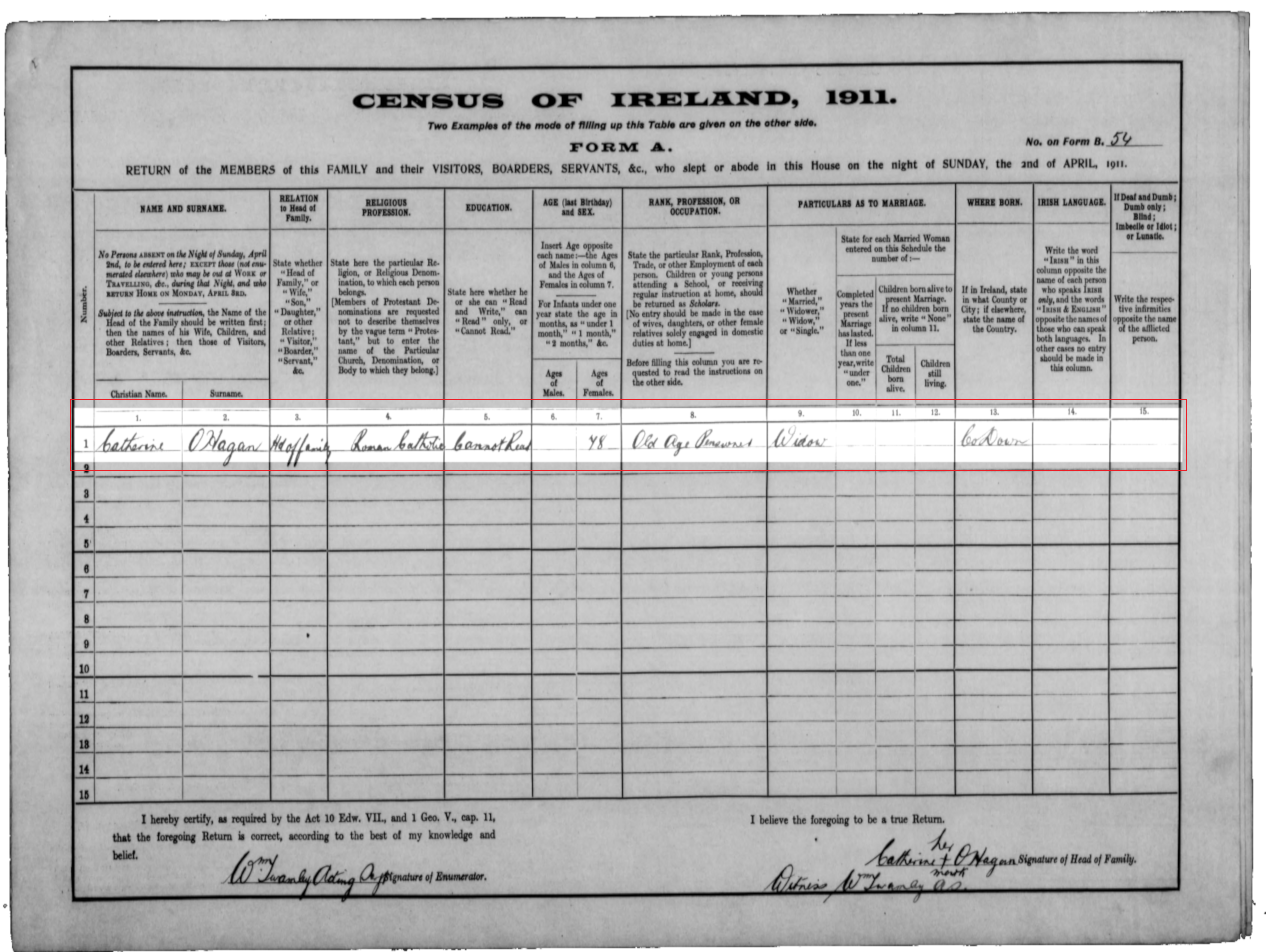 CENSUS OF IRELAND, 1911.
Two Examples of the mode of filling up this Table are given on the other side.
FORM A.
No. on Form B. 54
RETURN of the MEMBERS of this FAMILY and their VISITORS, BOARDERS, SERVANTS, &c., who slept or abode in this House on the night of SUNDAY, the 2nd of APRIL, 1911.
Number.
NAME AND SURNAME.
No Persons ABSENT on the Night of Sunday, April
2nd, to be entered here; EXCEPT those (not enu-
merated elsewhere) who may be out at WORK or
TRAVELLING, &c., during that Night, and who
RETURN HOME ON MONDAY, APRIL 3RD.
Subject to the above instruction, the Name of the
Head of the Family should be written first;
then the names of his Wife, Children, and
other Relatives; then those of Visitors,
Boarders, Servants, &c.
Christian Name.
Surname.
RELATION
to Head of
Family.
State whether
"Head of
Family," or
"Wife,"
"Son,"
"Daughter,"
or other
Relative;
"Visitor,"
"Boarder,"
"Servant,"
&c.
RELIGIOUS
PROFESSION.
State here the particular Re-
ligion, or Religious Denom-
ination, to which each person
belongs.
[Members of Protestant De-
nominations are requested
not to describe themselves
by the vague term "Protes-
tant," but to enter the
name of the Particular
Church, Denomination, or
Body to which they belong.]
EDUCATION.
State here whether he
or she can "Read
and Write," can
"Read" only, or
"Cannot Read."
AGE (last Birthday)
and SEX.
Insert Age opposite
each name:—the Ages
of Males in column 6,
and the Ages of
Females in column 7.
For Infants under one
year state the age in
months, as "under 1
month," "1 month,"
"2 months," &c.
Ages
of
Males.
Ages
of
Females.
RANK, PROFESSION, OR
OCCUPATION.
State the particular Rank, Profession,
Trade, or other Employment of each
person. Children or young persons
attending a School, or receiving
regular instruction at home, should
be returned as Scholars.
[No entry should be made in the case
of wives, daughters, or other female
relatives solely engaged in domestic
duties at home.]
Before filling this column you are re-
quested to read the instructions on
the other side.
PARTICULARS AS TO MARRIAGE.
Whether
"Married,"
"Widower,"
"Widow,"
or "Single."
State for each Married Woman
entered on this Schedule the
number of:—
Completed
years the
present
Marriage
has lasted.
If less
than one
year, write
"under
one."
Children born alive to
present Marriage.
If no children born
alive, write "None"
in column 11.
Total
Children
born
alive.
Children
still
living.
WHERE BORN.
If in Ireland, state
in what County or
City; if elsewhere,
state the name of
the Country.
IRISH LANGUAGE.
Write the word
"IRISH" in this
column opposite the
name of each person
who speaks IRISH
only, and the words
"IRISH & ENGLISH"
opposite the names of
those who can speak
both languages. In
other cases no entry
should be made in
this column.
If Deaf and Dumb;
Dumb only;
Blind;
Imbecile or Idiot;
or Lunatic.
Write the respec-
tive infirmities
opposite the name
of the afflicted
person.
1. 2. 3. 4. 5. 6. 7. 8. 9. 10. 11. 12. 13. 14. 15.
1 Catherine O'Hagan Hd of family Roman Catholic Cannot Read 78 Old Age Pensioner Widow Co Down
2
3
4
5
6
7
8
9
10
11
12
13
14
15
I hereby certify, as required by the Act 10 Edw. VII., and 1 Geo. V., cap. 11,
that the foregoing Return is correct, according to the best of my knowledge and
belief.
Wm Twamley Acting Signature of Enumerator.
I believe the foregoing to be a true Return.
her
Catherine + O'Hagan Signature of Head of Family.
mark
Witness Wm Twamley A.S.